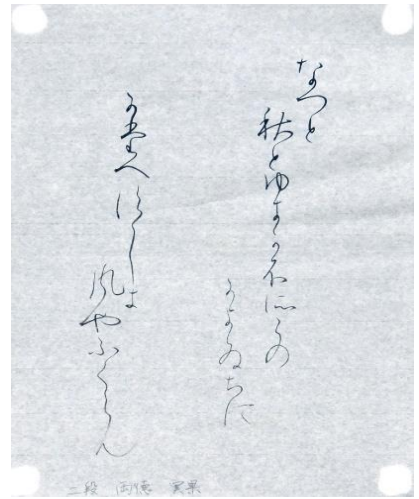 なつと
秋とゆきかふそらの
かよひちは
かたへすゝしき
風やふくらん
二段